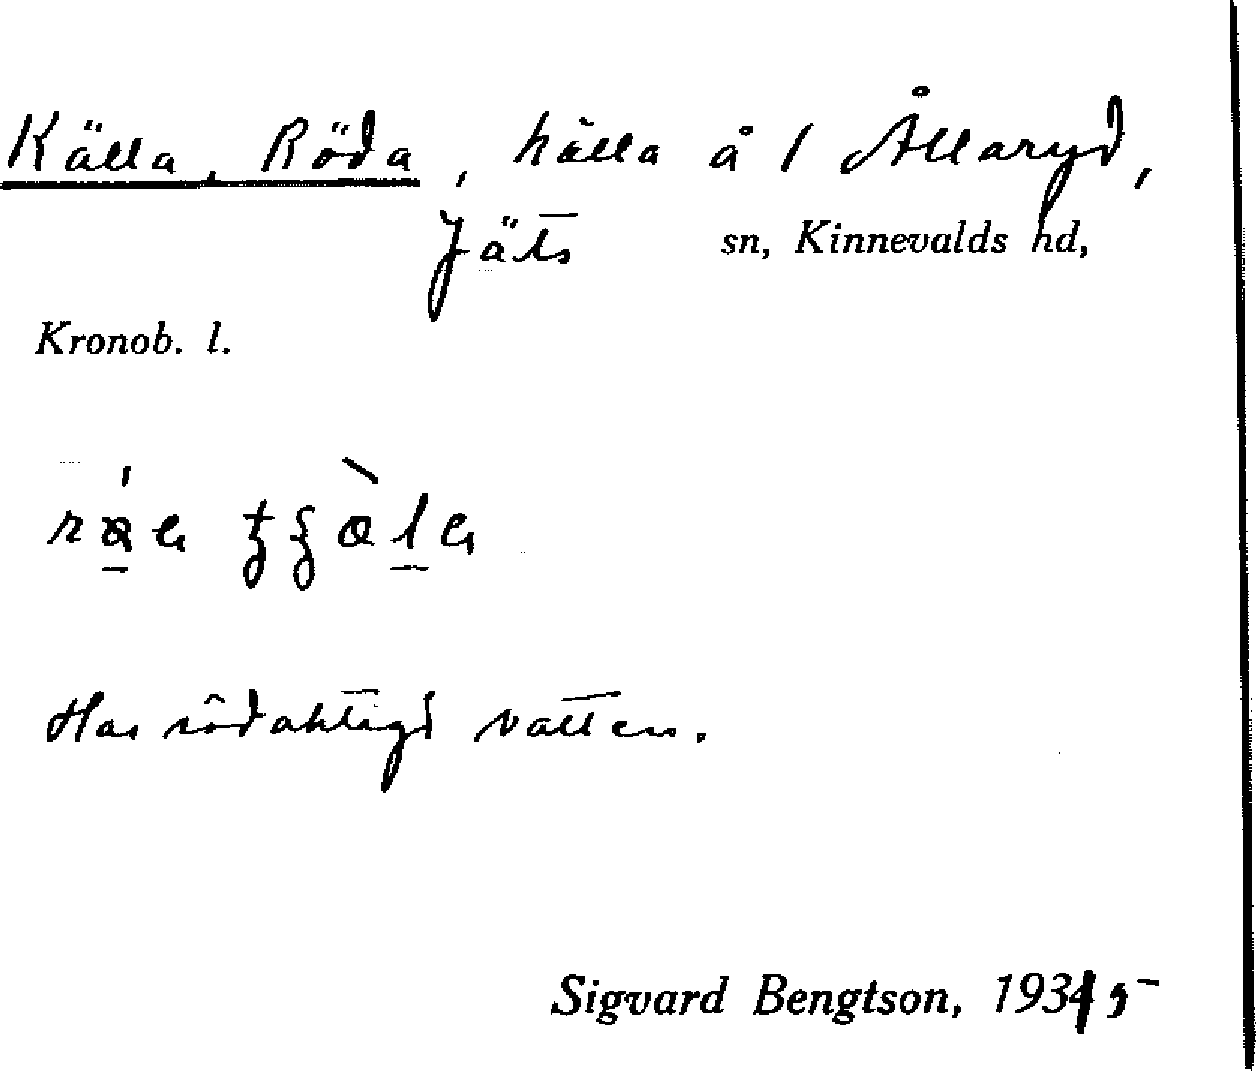 Källa, Röda, källa å 1 Ållaryd,
Jäts sn, Kinnevalds hd,
Kronob. l.
Har rödaktigt vatten.
Sigvard Bengtson, 1935